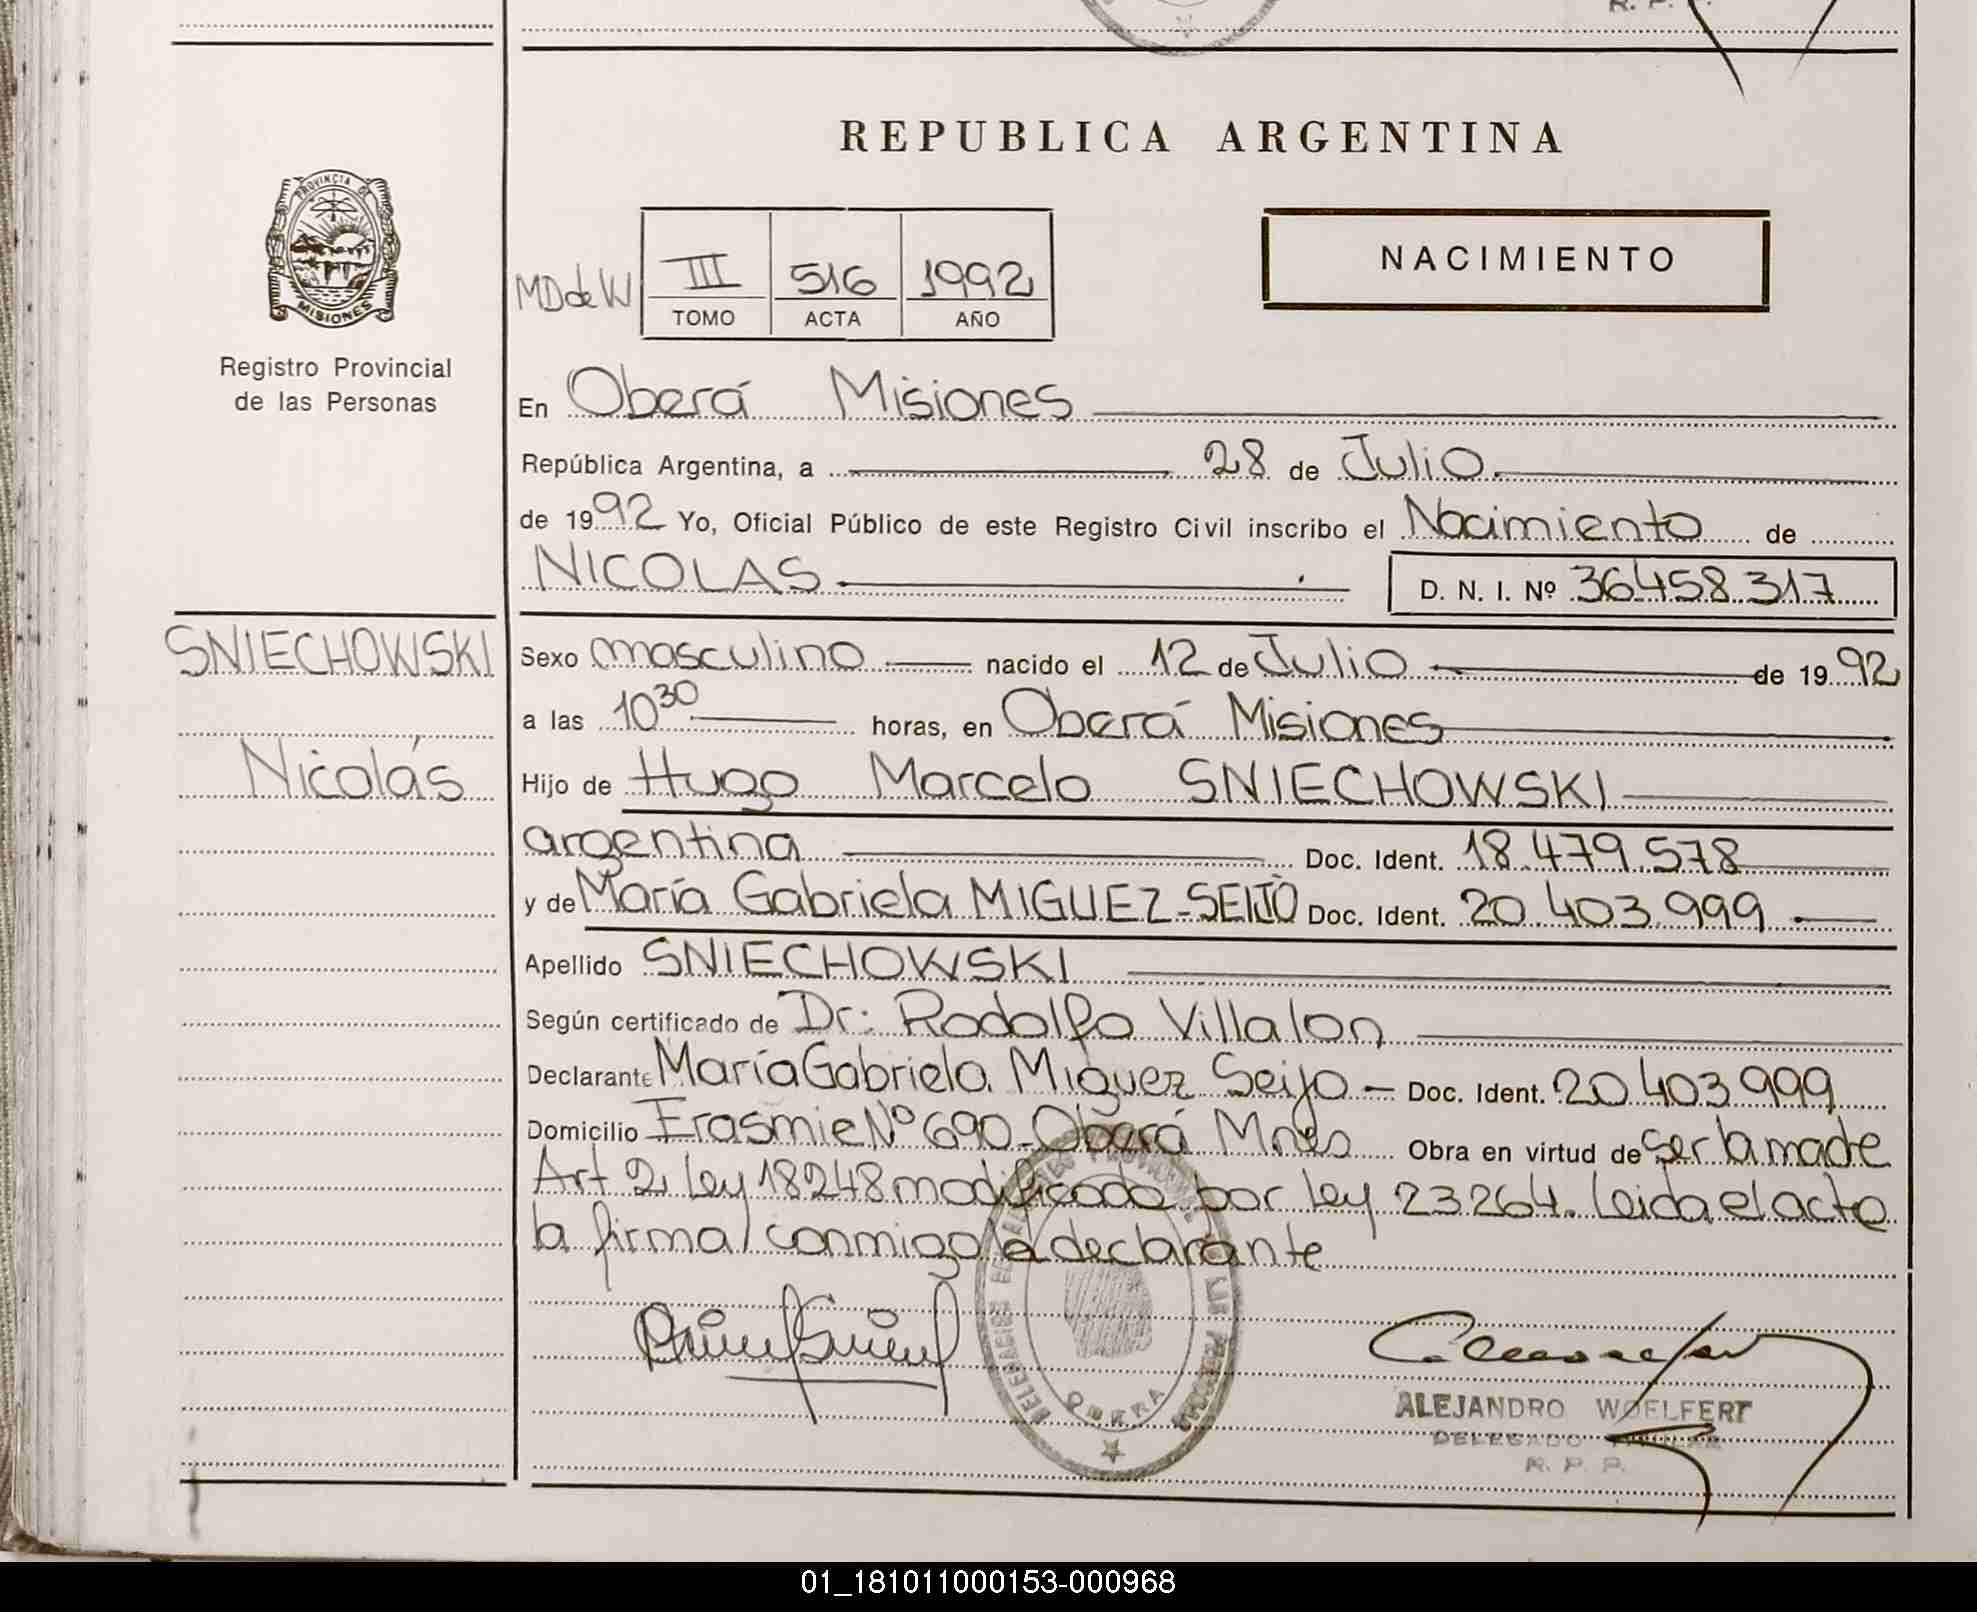 R. P. P.
REPUBLICA ARGENTINA
PROVINCIA DE
MISIONES
Registro Provincial
de las Personas
NACIMIENTO
MDdeW
III 516 1992
TOMO ACTA AÑO
En Oberá Misiones
República Argentina, a 28 de Julio
de 1992 Yo, Oficial Público de este Registro Civil inscribo el Nacimiento de
NICOLAS D. N. I. Nº 36.458.317
SNIECHOWSKI
Nicolás
Sexo masculino nacido el 12 de Julio de 1992
a las 10 30 horas, en Oberá Misiones
Hijo de Hugo Marcelo SNIECHOWSKI
argentina Doc. Ident. 18.479.578
y de María Gabriela MIGUEZ-SEIJO Doc. Ident. 20.403.999
Apellido SNIECHOWSKI
Según certificado de Dr. Rodolfo Villalon
Declarante María Gabriela Miguez Seijo - Doc. Ident. 20.403.999
Domicilio Erasmie Nº 690 - Oberá Mnes Obra en virtud de ser la madre
Art 2 Ley 18248 modificado por Ley 23264. Leida el acta
la firma conmigo la declarante
OBERA
ALEJANDRO WOELFERT
DELEGADO TITULAR
R. P. P.
01_181011000153-000968